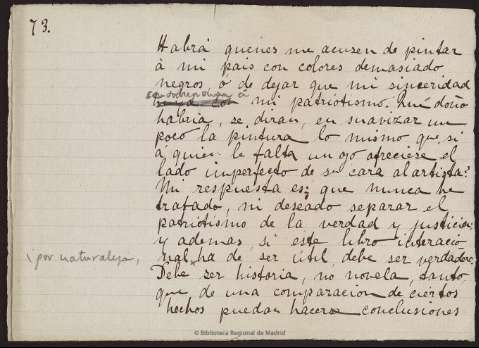 73.
Habrá quienes me acusen de pintar
á mi pais con colores demasiado
negros, ó de dejar que mi sinceridad
se sobreponga á
mi patriotismo. Que daño
habria, se diran, en suavizar un
poco la pintura lo mismo que si
á quien le falta un ojo ofreciese el
lado imperfecto de su cara al artista?
Mi respuesta es; que nunca he
tratado, ni deseado separar el
patriotismo de la verdad y justicia;
y ademas, si este libro
por naturaleza,
ha de ser útil debe ser verdadero.
Debe ser historia, no novela, tanto
que de una comparacion de ciertos
hechos puedan hacerse conclusiones
© Biblioteca Regional de Madrid